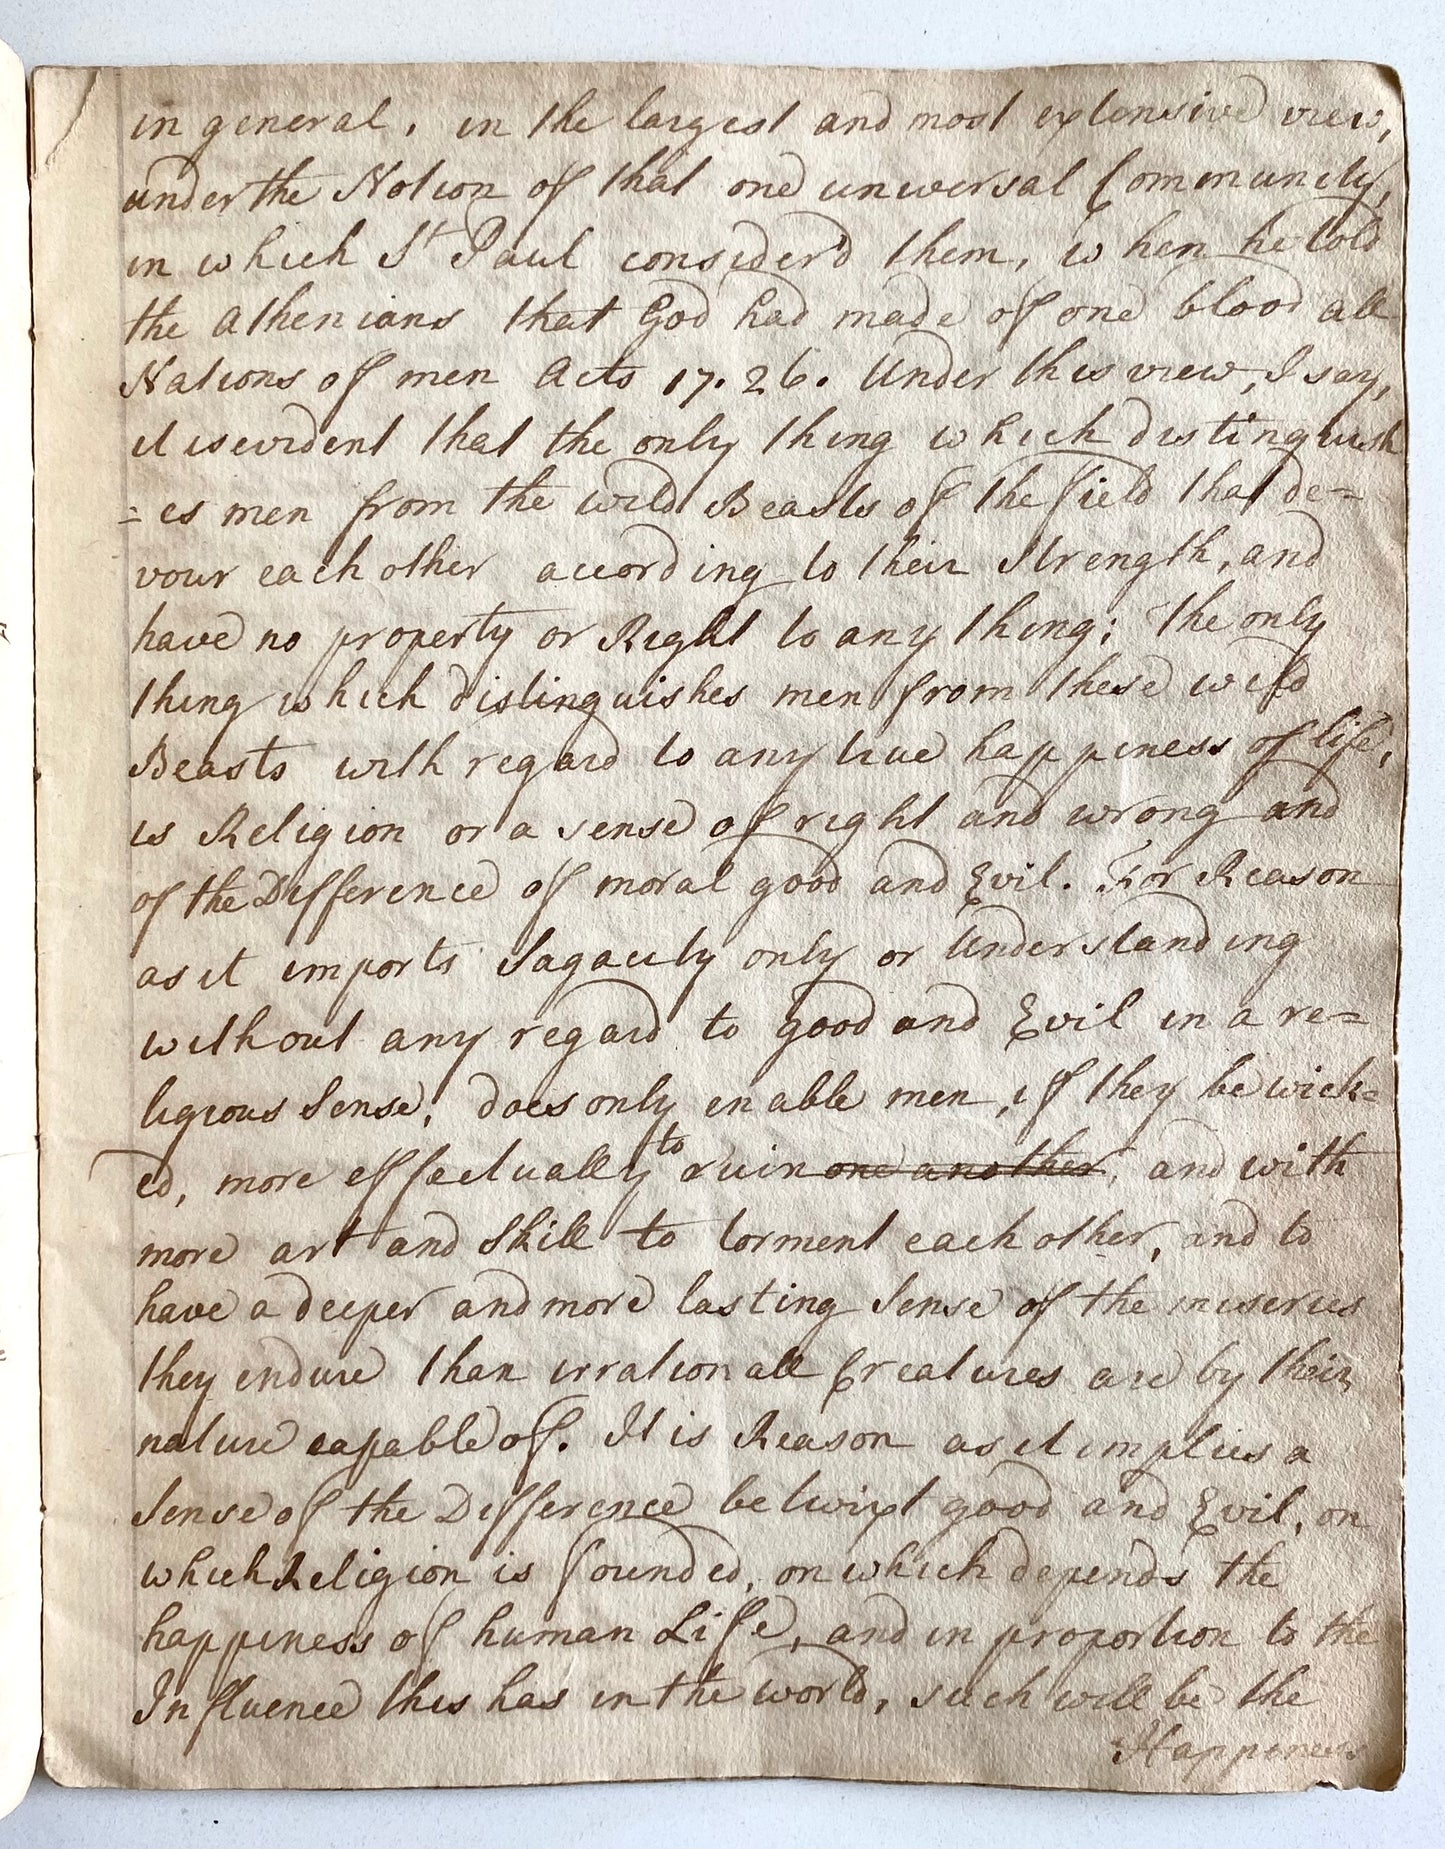 in general, in the largest and most extensive view,
under the Notion of that one universal Community,
in which St Paul consider'd them, when he told
the Athenians that God had made of one blood all
Nations of men Acts 17. 26. Under this view, I say,
it is evident that the only thing which distinguish
=es men from the wild Beasts of the field that de=
vour each other according to their Strength, and
have no property or Right to any thing; the only
thing which distinguishes men from these wild
Beasts with regard to any true happiness of life,
is Religion or a sense of right and wrong and
of the Difference of moral good and Evil. For Reason
as it imports Sagacity only or Understanding
without any regard to good and Evil in a re=
ligious Sense, does only enable men, if they be wick=
ed, more effectually to ruin one another, and with
more art and Skill to torment each other, and to
have a deeper and more lasting Sense of the miseries
they endure than irrationall Creatures are by their
nature capable of. It is Reason as it implies a
Sense of the Difference betwixt good and Evil, on
which Religion is founded, on which depends the
happiness of human Life, and in proportion to the
Influence this has in the world, such will be the
Happiness